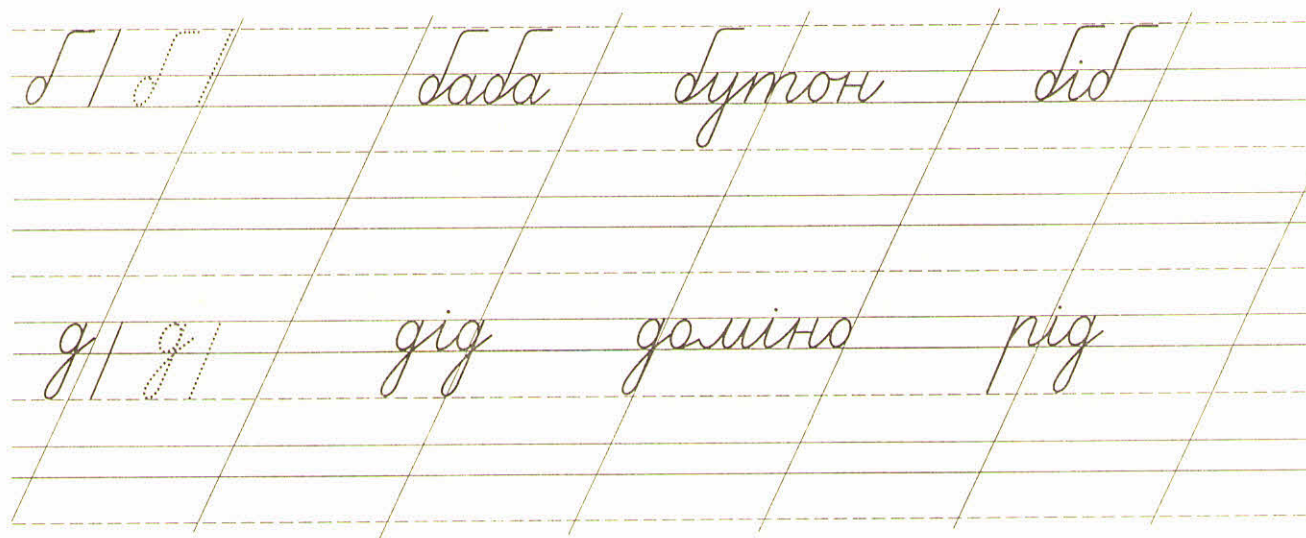 б б баба бутон біб
д д дід доміно рід